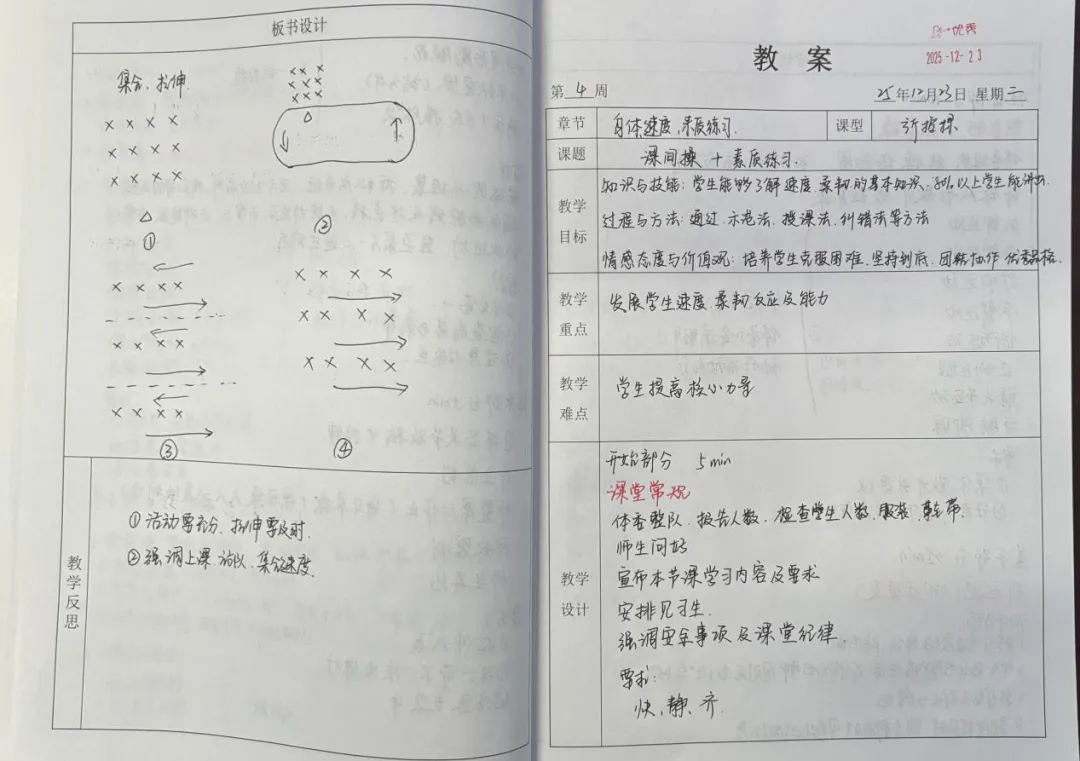 板书设计
集合、拉伸
× × × ×
× × × ×
× × × ×
△
①
× × ×
× × ×
× × ×
△
②
× × × ×
× × × ×
× × × ×
③
× × × ×
× × × ×
× × × ×
④
教学反思
①活动要充分,拉伸要及时.
②强调上课 集合速度
2025-12-23
教 案
第 4 周
25年12月23日 星期二
章节
身体速度,素质练习.
课型
新授课
课题
课间操 + 素质练习.
教学目标
知识与技能:学生能够了解速度.柔韧的基本知识.80%以上学生能
过程与方法:通过.示范法、授课法、纠错法等方法
情感态度与价值观:培养学生克服困难、坚持到底、团结协作
教学重点
发展学生速度.柔韧.反应及能力
教学难点
学生提高核心力量
教学设计
开始部分 5min
课堂常规
体委整队、报告人数、检查学生人数、服装、鞋带.
师生问好
宣布本节课学习内容及要求
安排见习生.
强调安全事项及课堂纪律
要求:
快、静、齐.